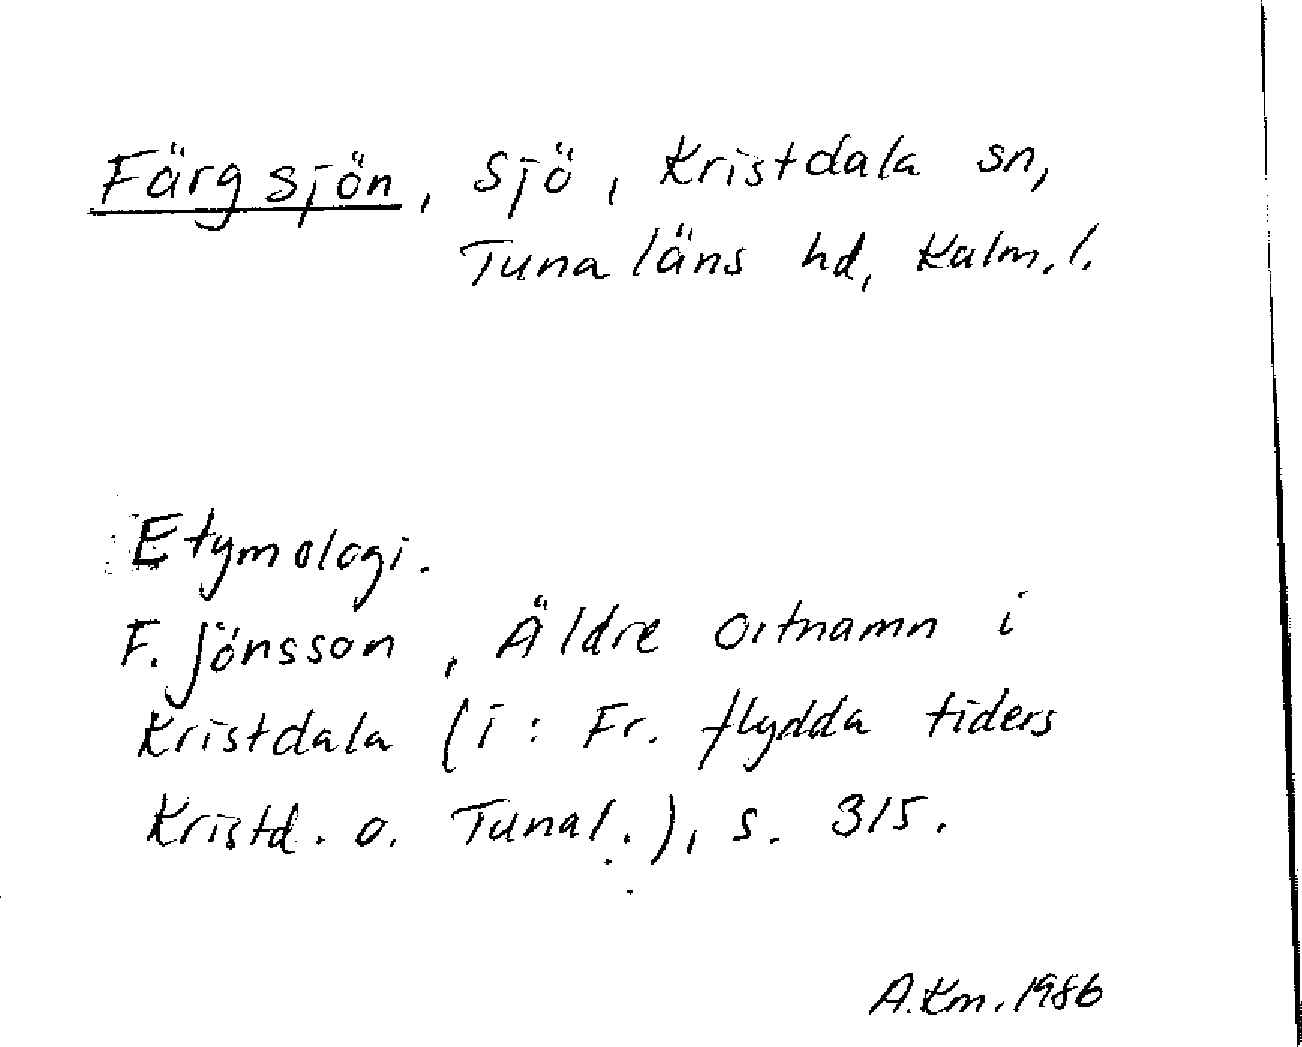 Färgsjön, sjö, Kristdala sn,
Tunaläns hd, Kalm. l.
Etymologi.
F. Jönsson, Äldre ortnamn i
Kristdala (i: Fr. flydda tiders
Kristd. o. Tunal.), s. 315.
A.Km. 1986